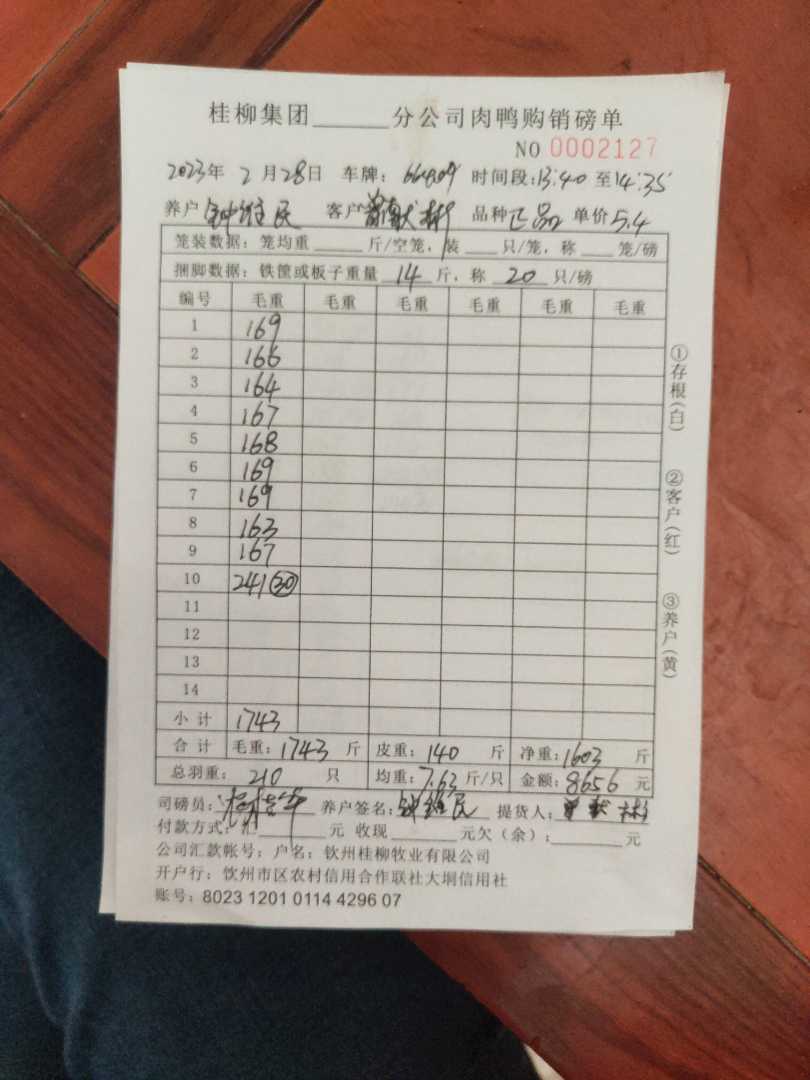 桂柳集团______分公司肉鸭购销磅单
NO 0002127
2023年 2月28日 车牌：66809 时间段：13:40 至14:35
养户 钟维民 客户 曾献彬 品种 正品 单价 5.4
笼装数据：笼均重____斤/空笼，装___只/笼，称___笼/磅
捆脚数据：铁筐或板子重量 14 斤，称 20 只/磅
编号 毛重 毛重 毛重 毛重 毛重 毛重
1 169
2 166
3 164
4 167
5 168
6 169
7 169
8 163
9 167
10 241 (30)
11
12
13
14
小计 1743
合计 毛重：1743 斤 皮重：140 斤 净重：1603 斤
总羽重：210 只 均重：7.63 斤/只 金额：8656 元
司磅员： 养户签名：钟维民 提货人：曾献彬
付款方式：汇______元 收现______元欠（余）：______元
公司汇款帐号：户名：钦州桂柳牧业有限公司
开户行：钦州市区农村信用合作联社大垌信用社
账号：8023 1201 0114 4296 07
①存根（白）
②客户（红）
③养户（黄）